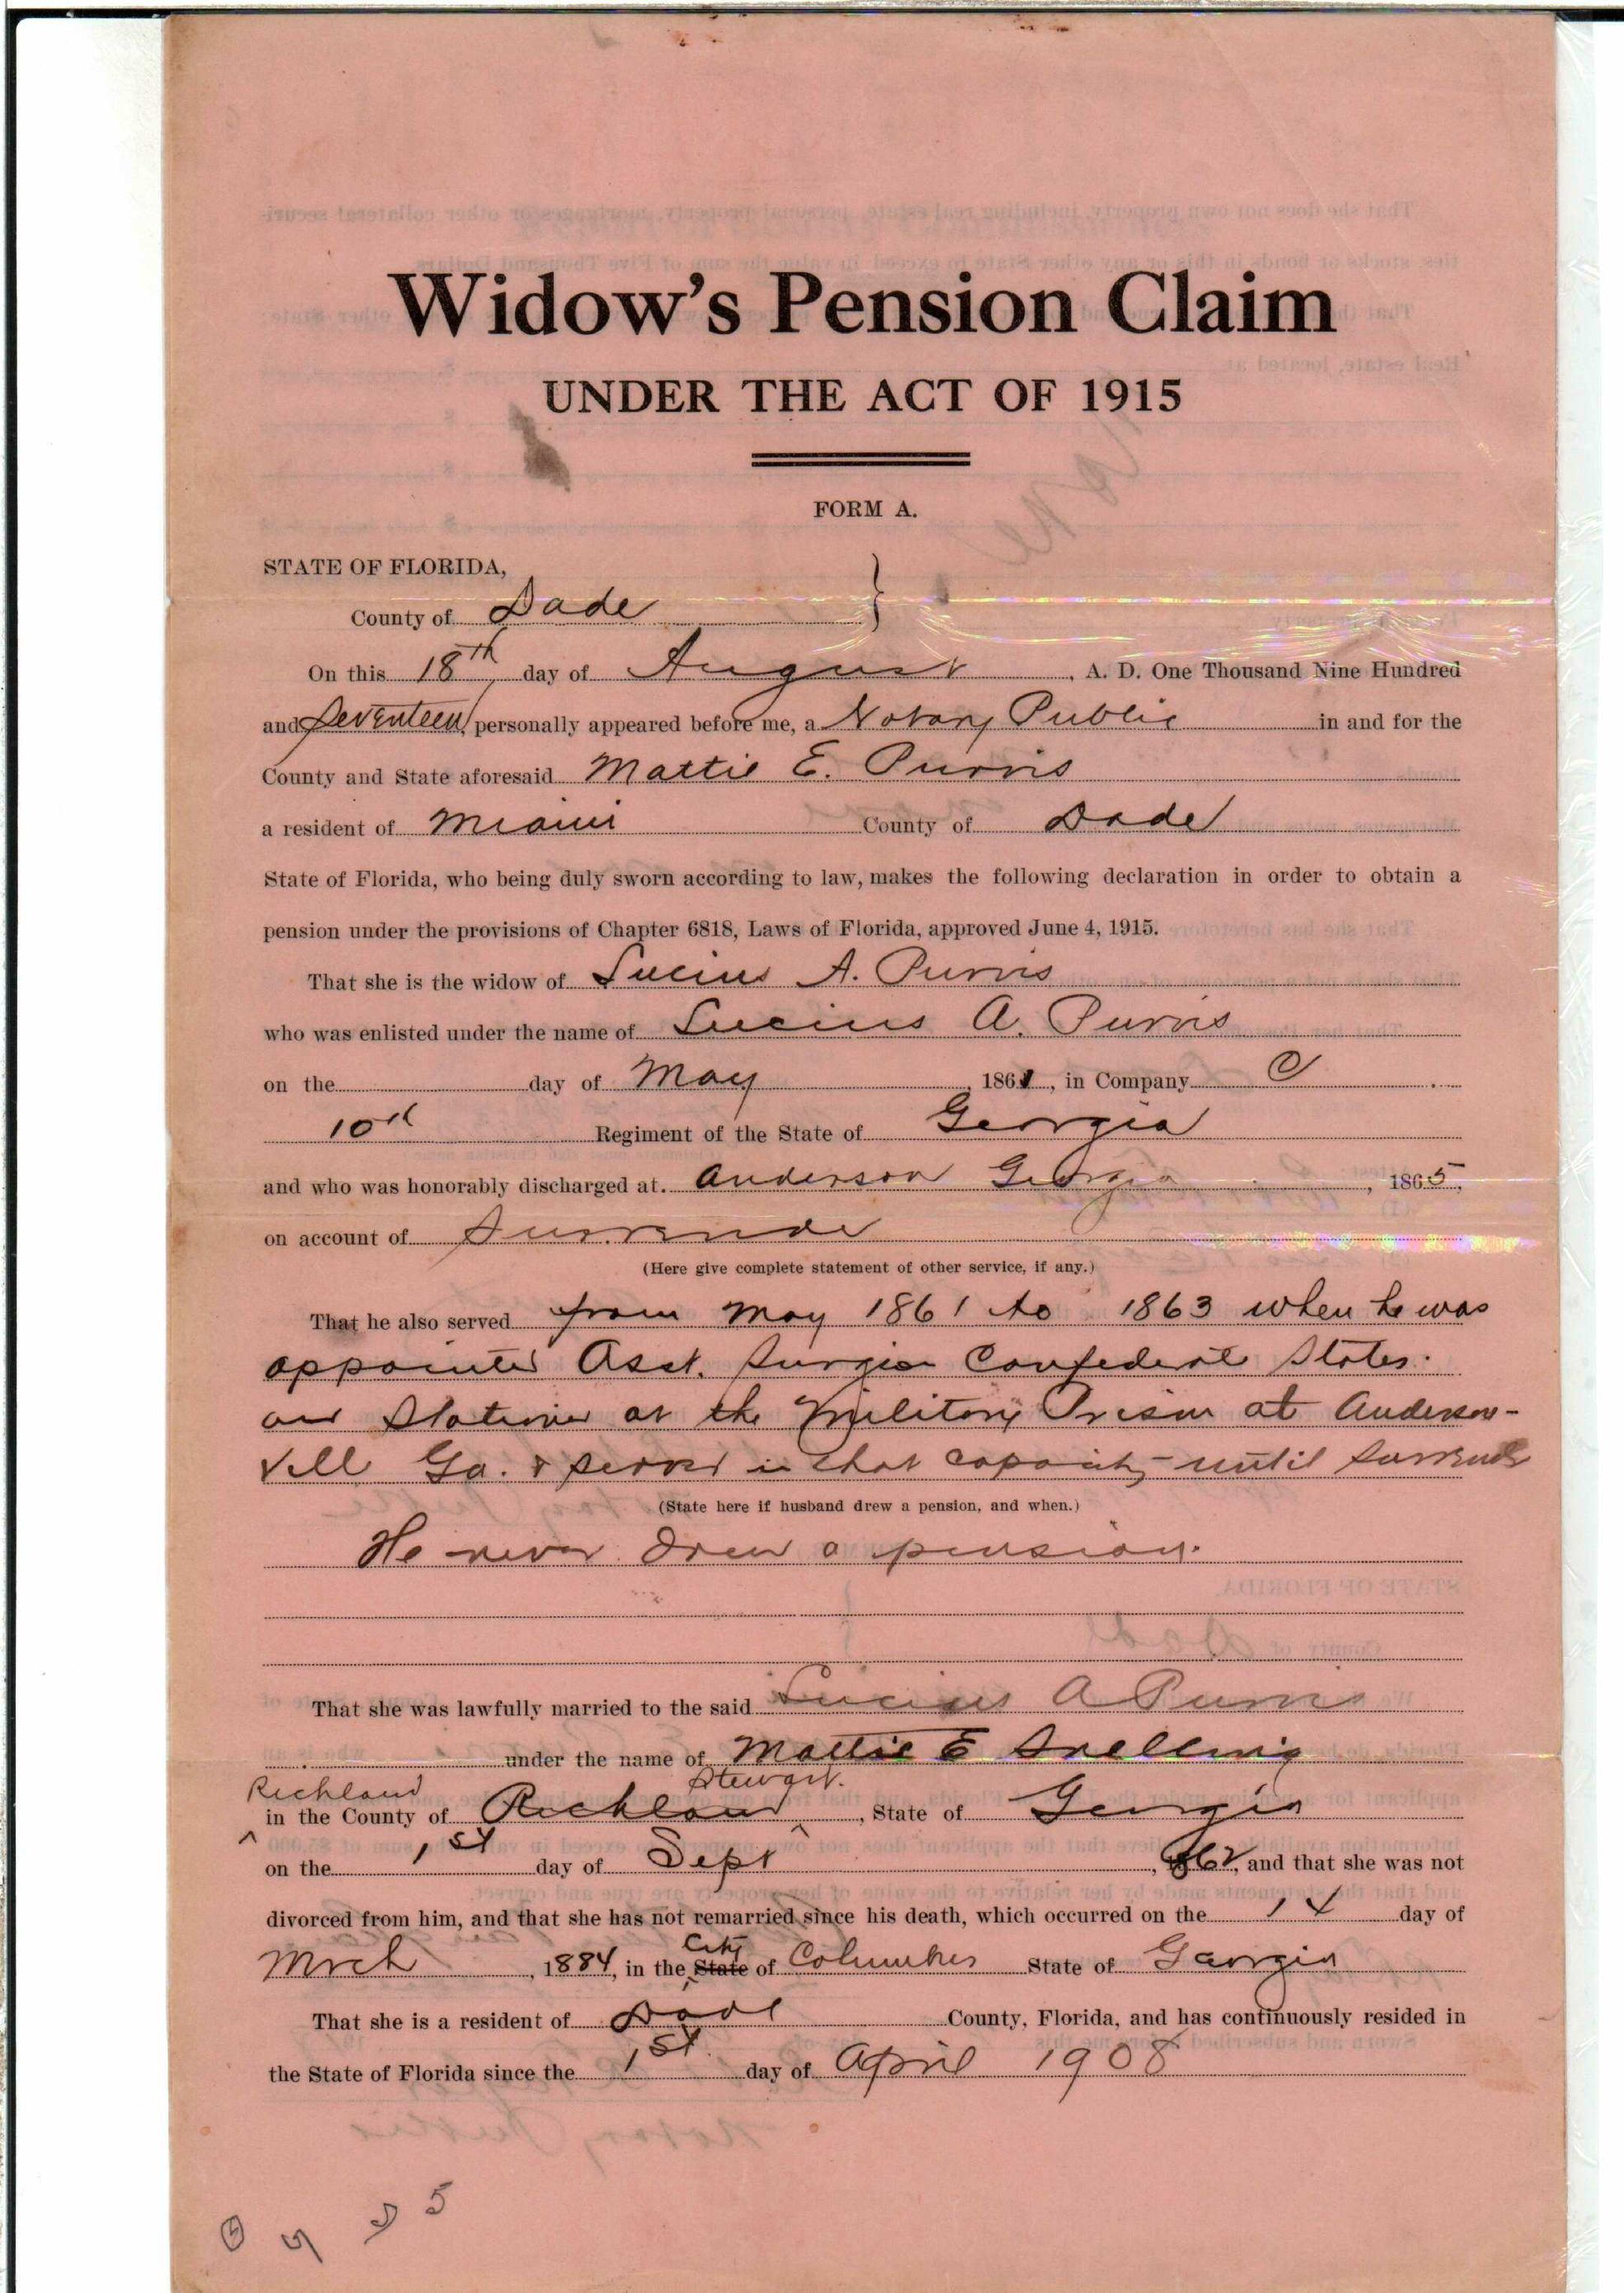 Widow's Pension Claim
UNDER THE ACT OF 1915
FORM A.
STATE OF FLORIDA,
County of Dade
On this 18th day of August, A. D. One Thousand Nine Hundred
and Seventeen personally appeared before me, a Notary Public in and for the
County and State aforesaid Mattie E. Purvis
a resident of Miami County of Dade
State of Florida, who being duly sworn according to law, makes the following declaration in order to obtain a
pension under the provisions of Chapter 6818, Laws of Florida, approved June 4, 1915.
That she is the widow of Lucius A. Purvis
who was enlisted under the name of Lucius A. Purvis
on the day of May, 1861, in Company C
10th Regiment of the State of Georgia
and who was honorably discharged at Anderson Georgia, 1865,
on account of Surrender
(Here give complete statement of other service, if any.)
That he also served from May 1861 to 1863 when he was
appointed Asst. Surgeon Confederate States.
and Stationed at the Military Prison at Anderson-
vill Ga. & served in that capacity until surrender
(State here if husband drew a pension, and when.)
He never drew a pension.
That she was lawfully married to the said Lucius A Purvis
under the name of Mattie E Snelling
Richland Stewart.
in the County of Richland, State of Georgia
on the 1st day of Sept, 1862, and that she was not
divorced from him, and that she has not remarried since his death, which occurred on the 14 day of
Mrch, 1884, in the City State of Columbus State of Georgia
That she is a resident of Dade County, Florida, and has continuously resided in
the State of Florida since the 1st day of April 1908